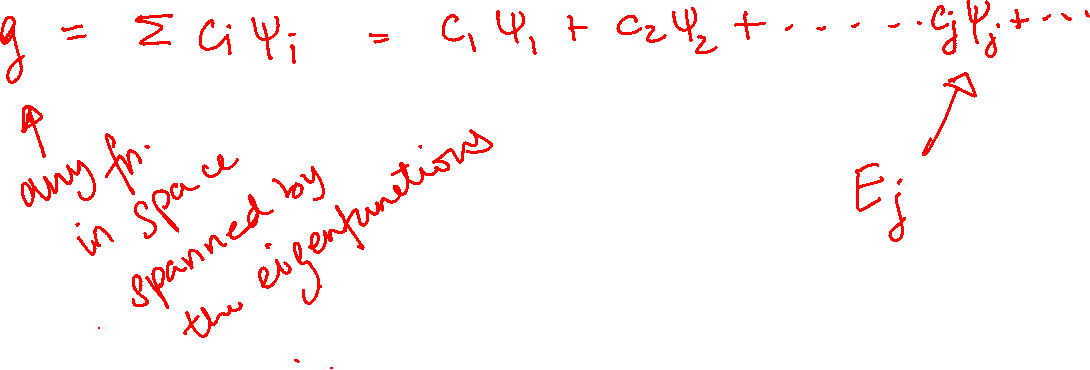 g = Σ Ci Ψi = C1 Ψ1 + C2 Ψ2 + ....... Cj Ψj + ...
any fn.
in space
spanned by
the eigenfunctions
Ej